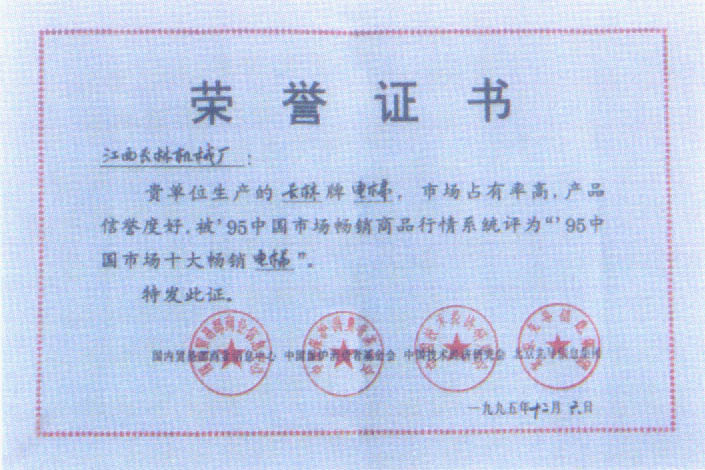 荣誉证书
江西长林机械厂：
贵单位生产的长林牌电梯，市场占有率高，产品
信誉度好，被’95中国市场畅销商品行情系统评为“’95中
国市场十大畅销电梯”。
特发此证。
国内贸易部商业信息中心 中国保护消费者基金会 中国技术经济研究会
一九九五年十二月六日